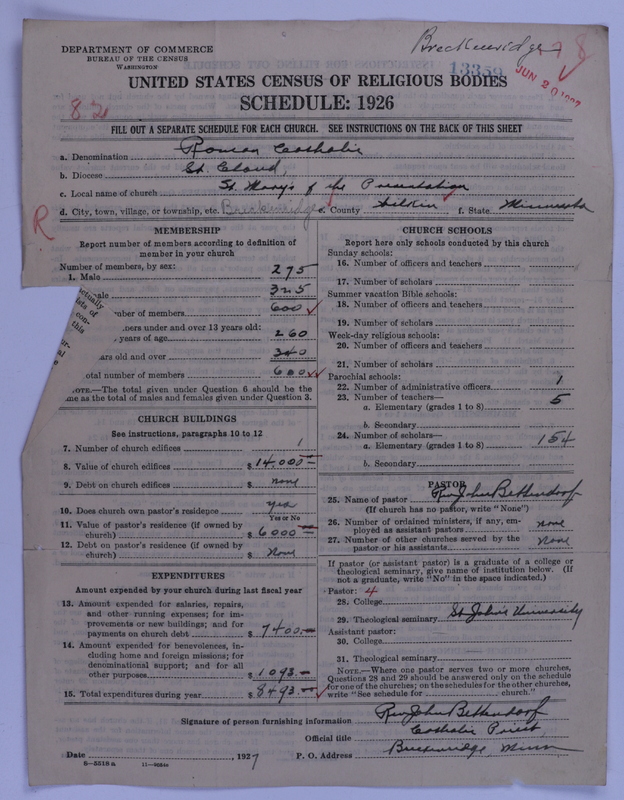 Breckenridge 78
13359
JUN 20 1927
DEPARTMENT OF COMMERCE
BUREAU OF THE CENSUS
WASHINGTON
82
UNITED STATES CENSUS OF RELIGIOUS BODIES
SCHEDULE: 1926
FILL OUT A SEPARATE SCHEDULE FOR EACH CHURCH. SEE INSTRUCTIONS ON THE BACK OF THIS SHEET
a. Denomination Roman Catholic
b. Diocese St. Cloud,
c. Local name of church St. Mary's of the Presentation
d. City, town, village, or township, etc. Breckenridge e. County Wilkin f. State Minnesota
R
MEMBERSHIP
Report number of members according to definition of
member in your church
Number of members, by sex:
1. Male 275
ale 325
ber of members 600
bers under and over 13 years old:
years of age 260
ars old and over 340
otal number of members 600
OTE.—The total given under Question 6 should be the
me as the total of males and females given under Question 3.
CHURCH BUILDINGS
See instructions, paragraphs 10 to 12
7. Number of church edifices 1
8. Value of church edifices $ 14,000
9. Debt on church edifices $ none
10. Does church own pastor's residence yes
Yes or No
11. Value of pastor's residence (if owned by
church) $ 6000
12. Debt on pastor's residence (if owned by
church) $ None
EXPENDITURES
Amount expended by your church during last fiscal year
13. Amount expended for salaries, repairs,
and other running expenses; for im-
provements or new buildings; and for
payments on church debt $ 7400.—
14. Amount expended for benevolences, in-
cluding home and foreign missions; for
denominational support; and for all
other purposes $ 1093.—
15. Total expenditures during year $ 8493.—
CHURCH SCHOOLS
Report here only schools conducted by this church
Sunday schools:
16. Number of officers and teachers
17. Number of scholars
Summer vacation Bible schools:
18. Number of officers and teachers
19. Number of scholars
Week-day religious schools:
20. Number of officers and teachers
21. Number of scholars
Parochial schools:
22. Number of administrative officers 1
23. Number of teachers—
a. Elementary (grades 1 to 8) 5
b. Secondary
24. Number of scholars—
a. Elementary (grades 1 to 8) 154
b. Secondary
PASTOR
25. Name of pastor Rev John Bettendorf
(If church has no pastor, write "None")
26. Number of ordained ministers, if any, em-
ployed as assistant pastors none
27. Number of other churches served by the
pastor or his assistants None
If pastor (or assistant pastor) is a graduate of a college or
theological seminary, give name of institution below. (If
not a graduate, write "No" in the space indicated.)
Pastor: 4
28. College
29. Theological seminary St John's University
Assistant pastor:
30. College
31. Theological seminary
NOTE.—Where one pastor serves two or more churches,
Questions 28 and 29 should be answered only on the schedule
for one of the churches; on the schedules for the other churches,
write "See schedule for church."
Signature of person furnishing information Rev John Bettendorf
Official title Catholic Priest
Date , 1927 P. O. Address Breckenridge, Minn
8—5318 a